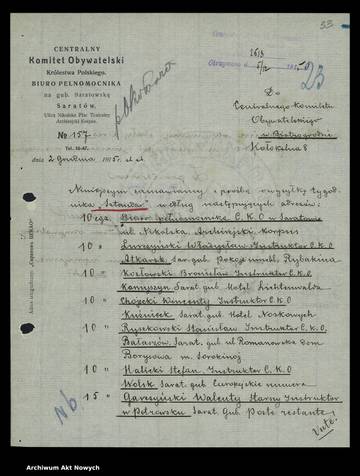 33
CENTRALNY
Komitet Obywatelski
Królestwa Polskiego.
BIURO PEŁNOMOCNIKA
na gub. Saratowską
Saratów.
Ulica Nikolska Plac Teatralny
Archirejski Korpus.
№ 157
Tel. 10-47.
dnia 2 Grudnia 1915 r. st. st.
23
Do
Centralnego Komitetu
Obywatelskiego
w Piotrogrodzie
Kołokolna 8
Niniejszym zamawiamy z prośbą o wysyłkę tygod-
nika według następujących adresów:
10 egz. Biuro pełnomocnika C.K.O w Saratowie
ul. Nikolska, Archirejski Korpus
10 " Władysław Instruktor C.K.O
Atkarsk Sar. gub. Pokoje umebl. Rybakina
10 " Kozłowski Bronisław Instruktor C.K.O
Kamyszyn Sarat. gub. Hotel Lichtenwalda
10 " Chojecki Wincenty Instruktor C.K.O
Kuźnieck Sarat. gub. Hotel Noskowych
10 " Ryszkowski Stanisław Instruktor C.K.O.
Bałaszów. Sarat. gub. ul Romanowska Dom
Borysowa m. Sorokinoj
10 " Halicki Stefan Instruktor C.K.O
Wolsk Sarat. gub. Europejskie numera
15 " Walenty Starszy Instruktor
w Petrowsku Sarat. Gub. Poste restante!
Verte!
Nb.
Archiwum Akt Nowych